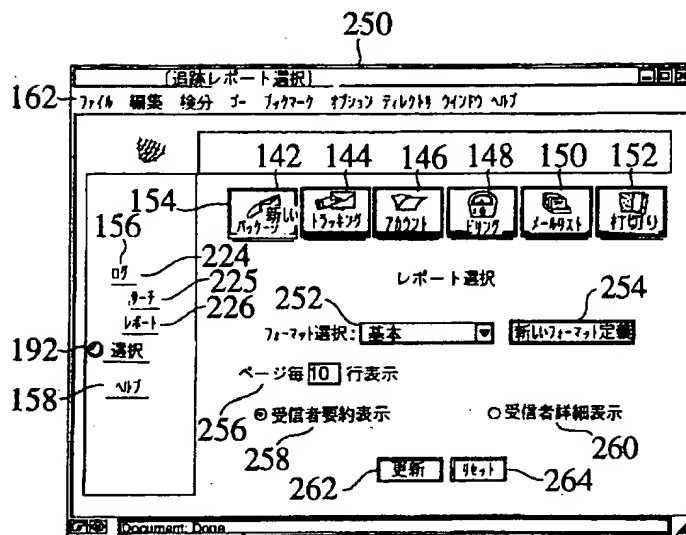 250
(追跡レポート選択)
162 ファイル 編集 検分 ゴー ブックマーク オプション ディレクトリ ウインドウ ヘルプ
142 144 146 148 150 152
154 新しい パッケージ トラッキング アカウント ビリング メールリスト 打切り
156 ログ 224
サーチ 225
レポート 226
192 選択
158 ヘルプ
レポート選択
252 254
フォーマット選択: 基本 新しいフォーマット定義
ページ毎 10 行表示
256 受信者要約表示 受信者詳細表示
258 260
262 更新 リセット 264
Document: Done